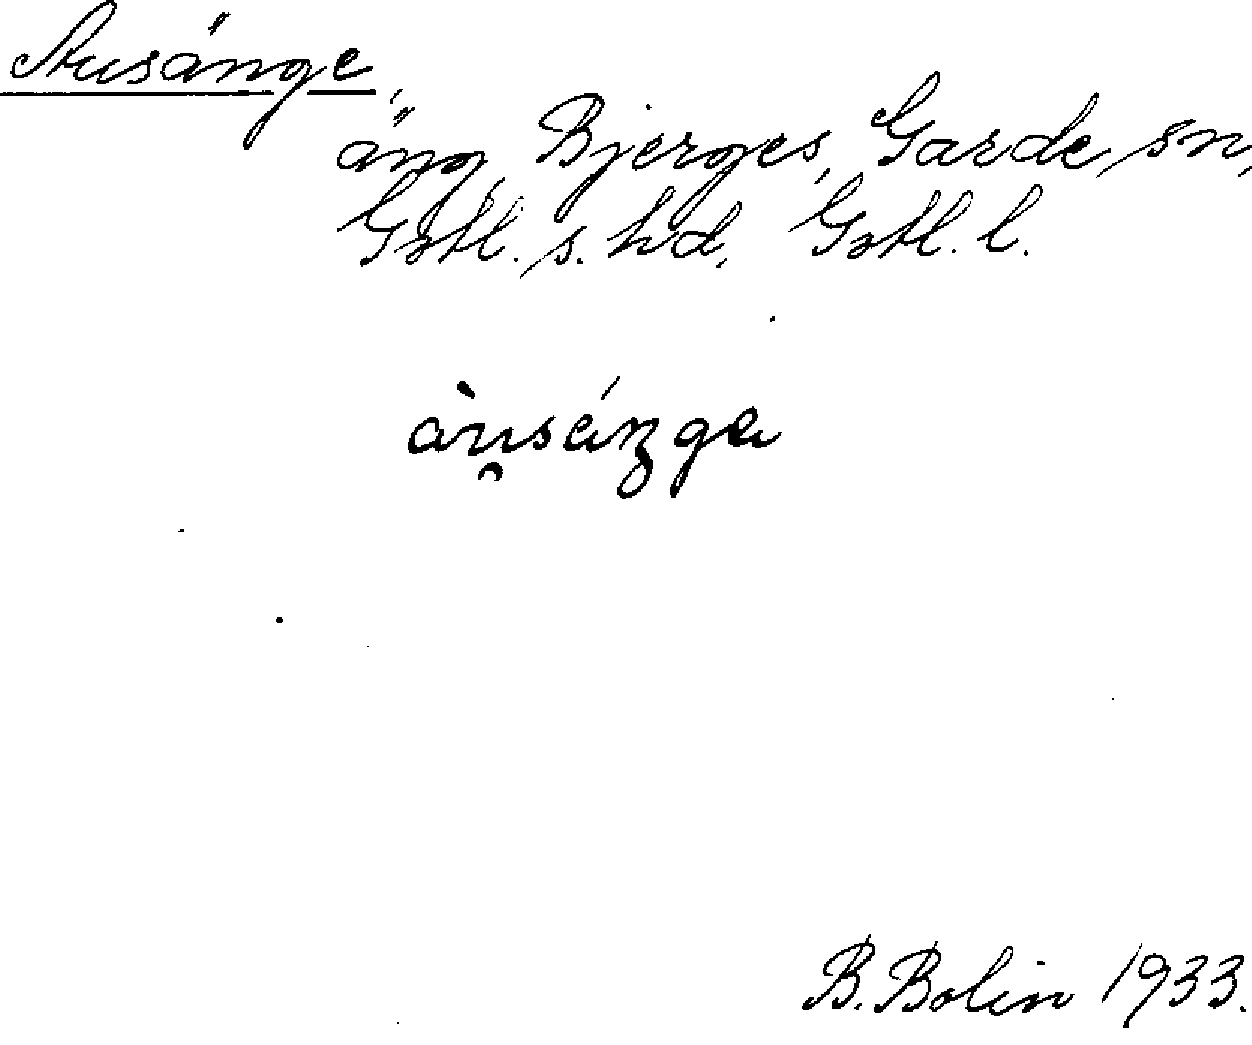 Ausänge,
äng, Bjerges, Garde sn,
Gotl. s. hd, Gotl. l.
àu̯sáŋga
B. Bolin 1933.